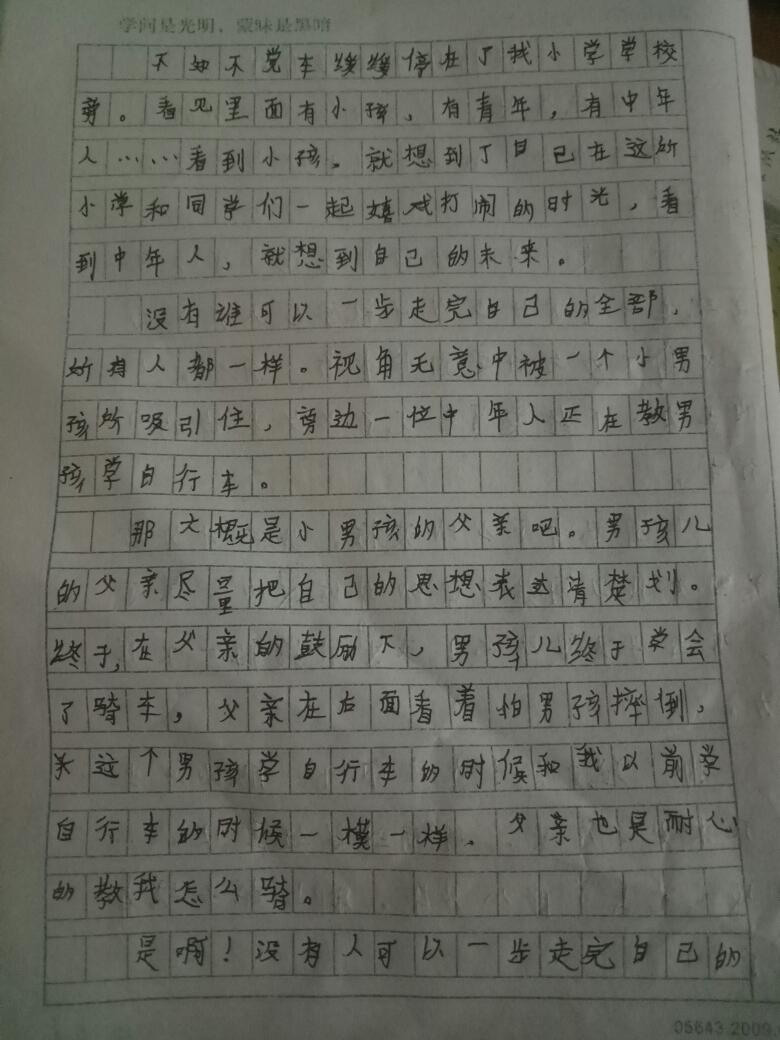 学问是光明，蒙昧是黑暗
不知不觉车缓缓停在了我小学学校
旁。看见里面有小孩，有青年，有中年
人……看到小孩，就想到了自己在这所
小学和同学们一起嬉戏打闹的时光，看
到中年人，就想到自己的未来。
没有谁可以一步走完自己的全部，
所有人都一样。视角无意中被一个小男
孩所吸引住，旁边一位中年人正在教男
孩学自行车。
那大概是小男孩的父亲吧。男孩儿
的父亲尽量把自己的思想表达清楚
终于，在父亲的鼓励下，男孩儿终于学会
了骑车，父亲在右面看着怕男孩摔倒，
这个男孩学自行车的时候和我以前学
自行车的时候一模一样，父亲也是耐心
的教我怎么骑。
是啊！没有人可以一步走完自己的
05643.2009.